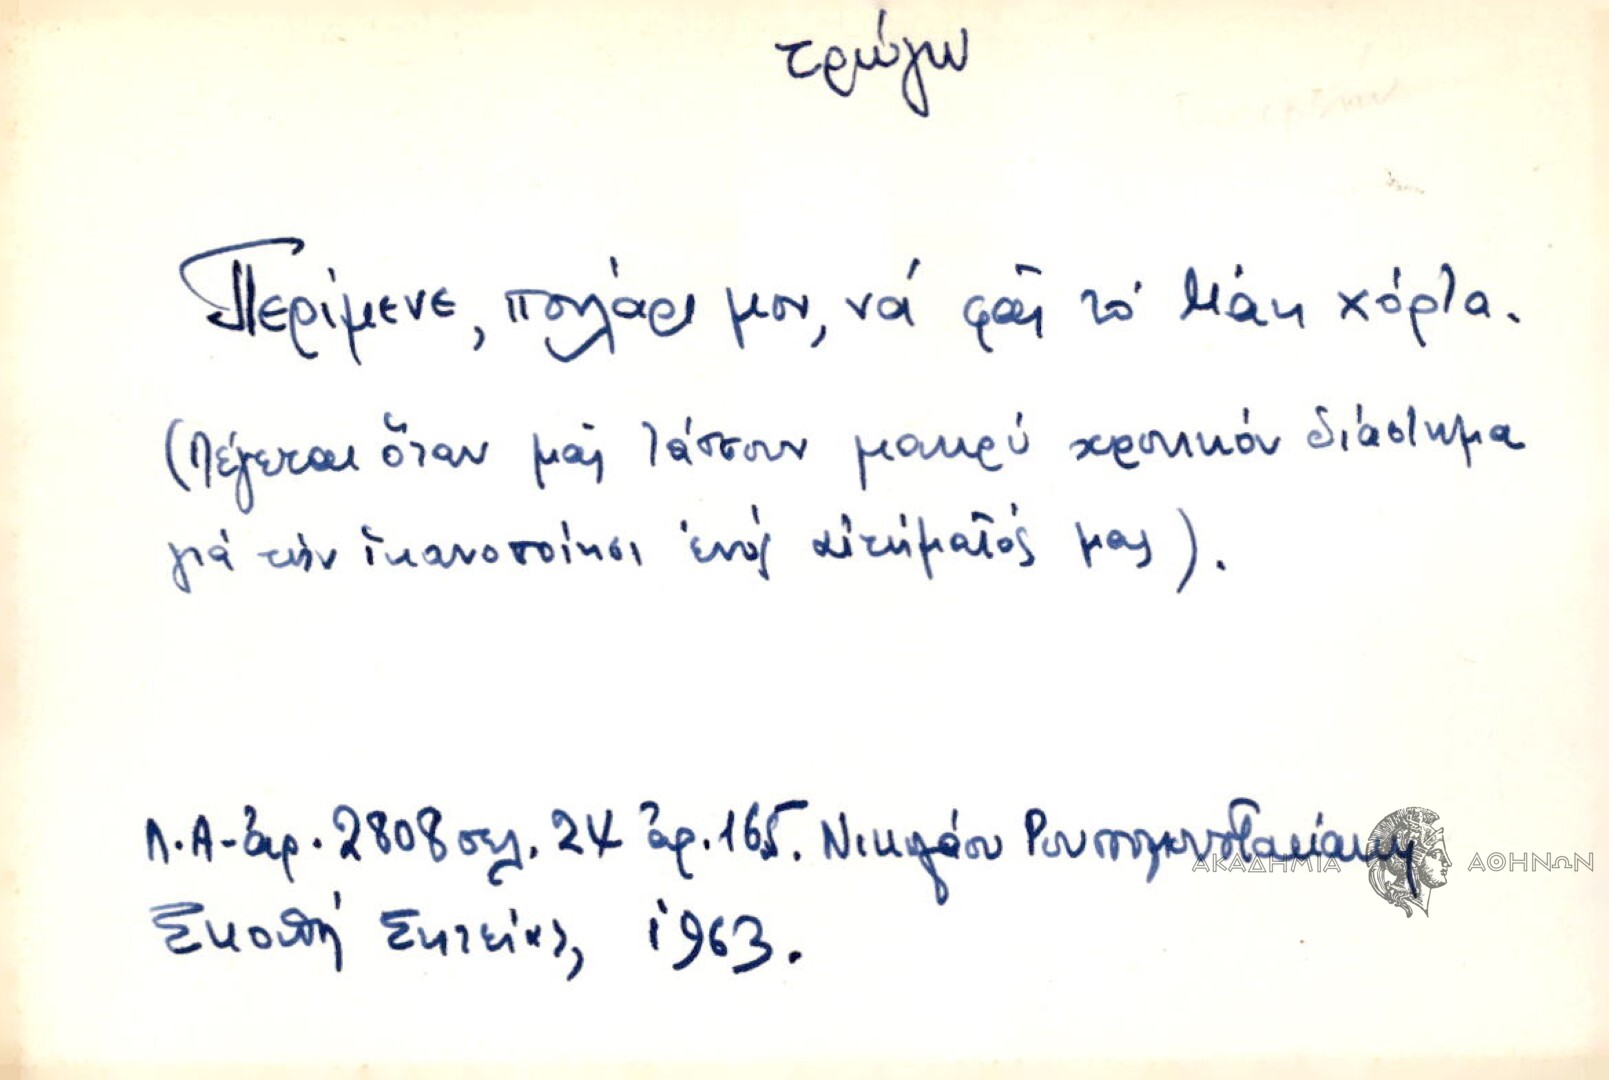 τρώγω
Περίμενε, πουλάρι μου, νά φᾶς τό Μάη χόρτα.
(Λέγεται ὅταν μᾶς τάσσουν μακρύ χρονικόν διάστημα
γιά τήν ἱκανοποίησι ἑνός αἰτήματός μας).
Λ.Α-ἀρ. 2808 σελ. 24 ἀρ. 165. Νικολάου
Σκοπή Σητείας, 1963.
ΑΚΑΔΗΜΙΑ ΑΘΗΝΩΝ